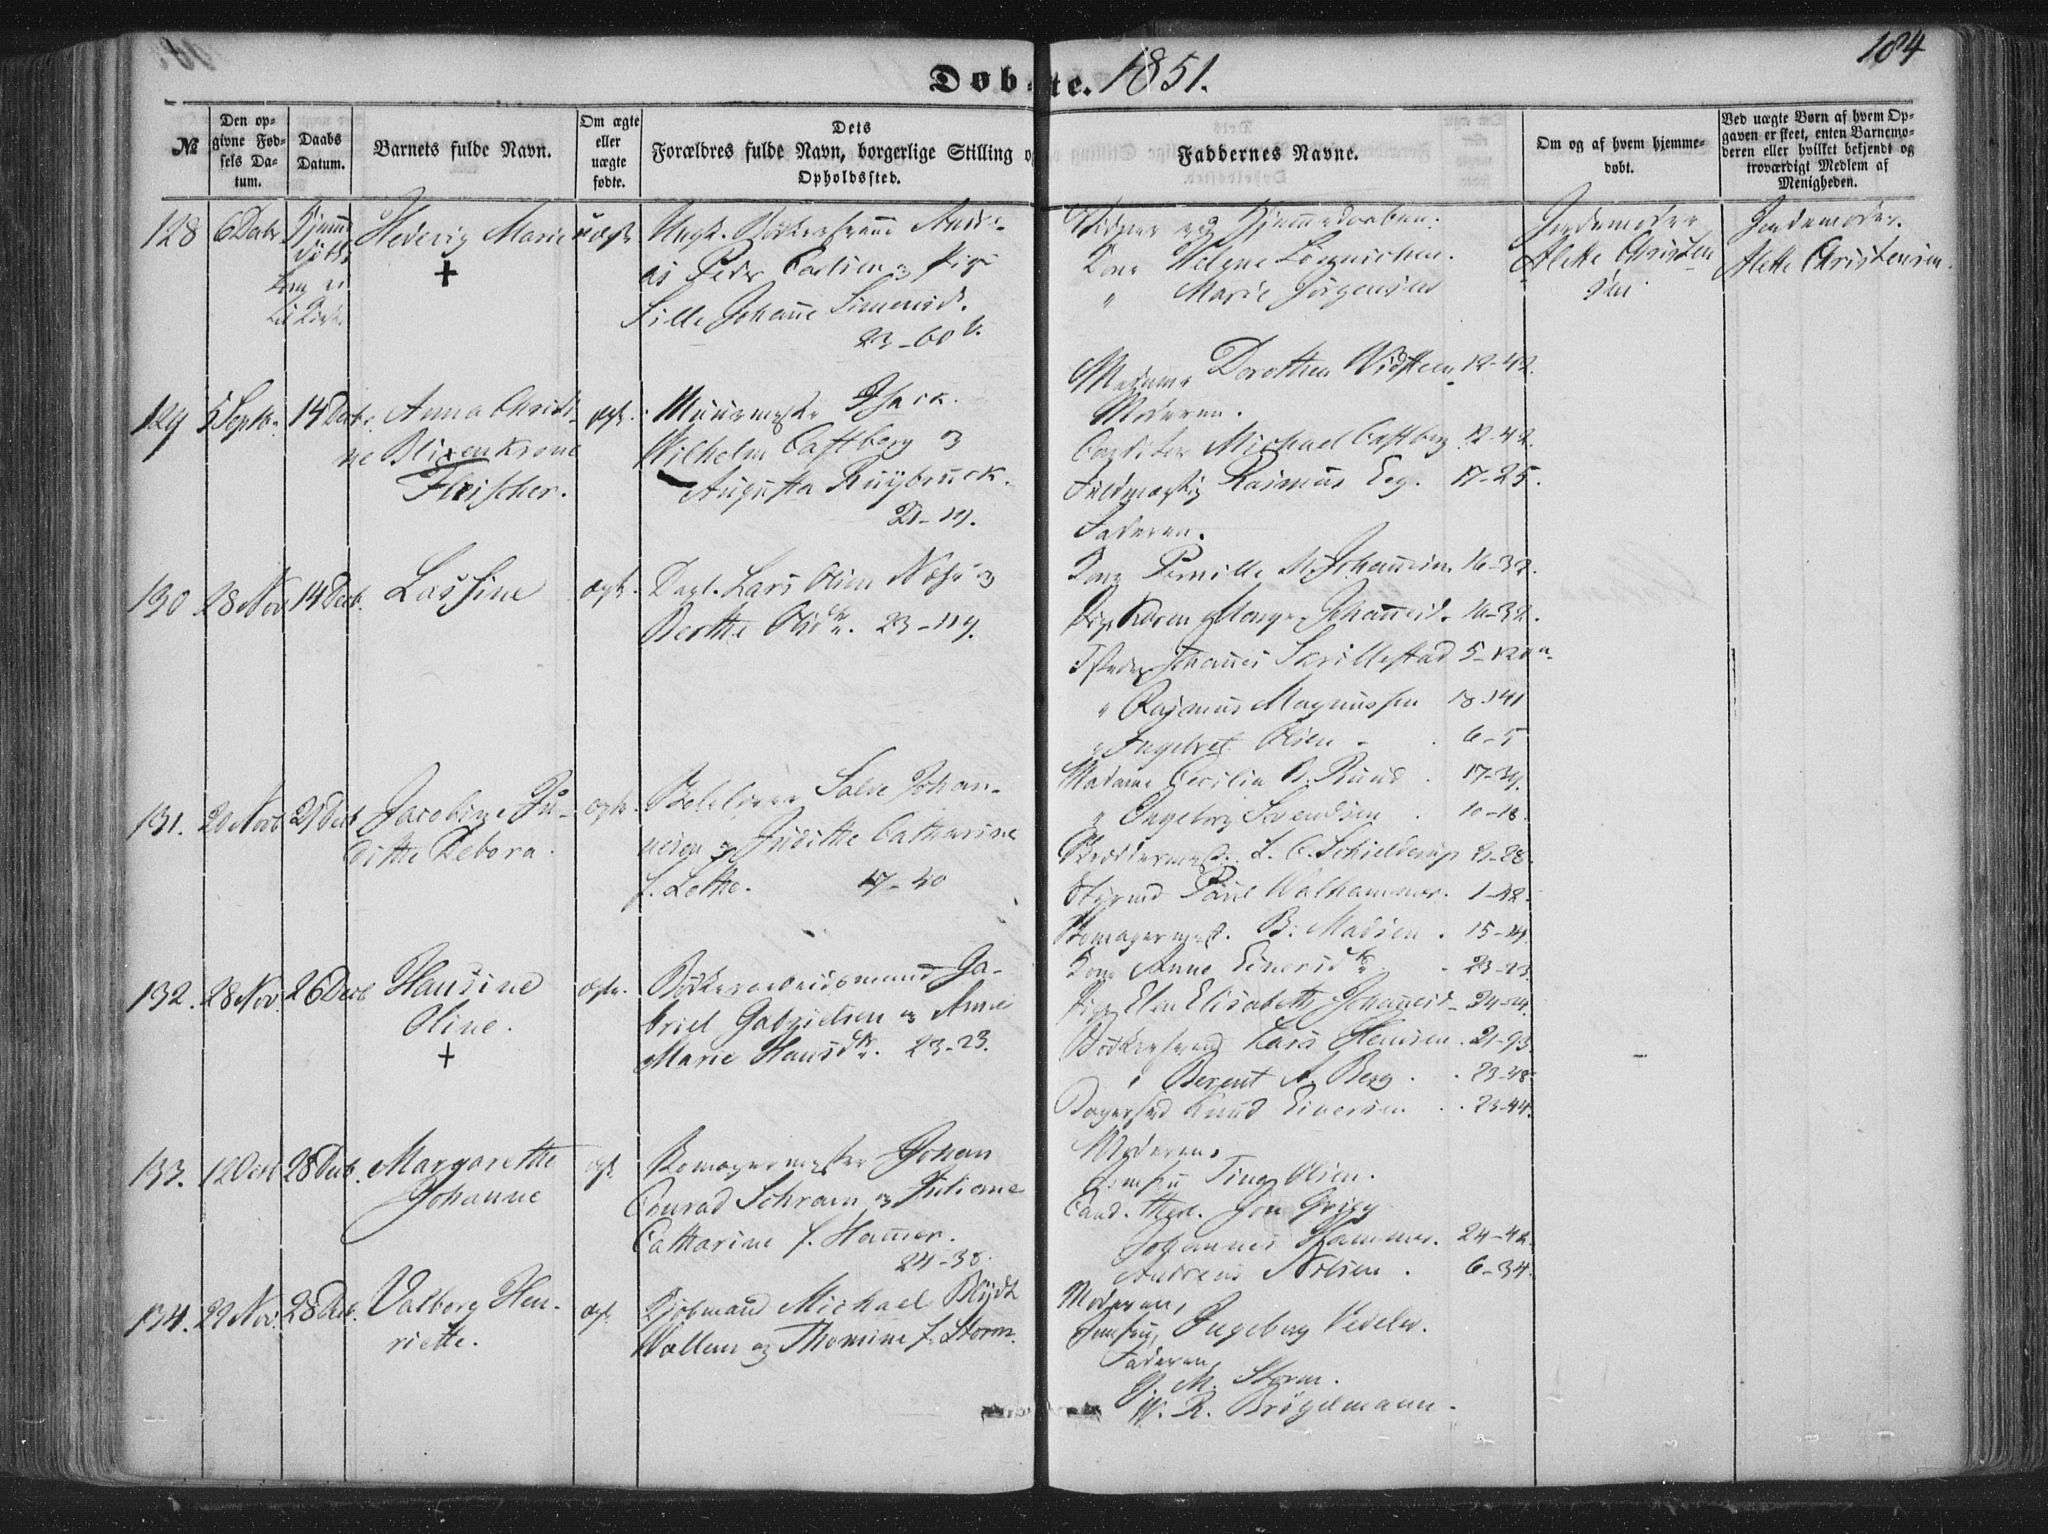 184
Døbte. 1851.
№
Den op-
givne Fød-
sels Da-
tum.
Daabs
Datum.
Barnets fulde Navn.
Om ægte
eller
uægte
fødte.
Dets
Forældres fulde Navn, borgerlige Stilling og
Opholdssted.
Faddernes Navne.
Om og af hvem hjemme-
døbt.
Ved uægte Børn af hvem Op-
gaven er skeet, enten Barnemo-
deren eller hvilket bekjendt og
troværdigt Medlem af
Menigheden.
128
6 Decbr
Hjemme
døbt
kom ei
til Kirke
Hedevig Marie
+
uægte
Ungk. Bødkersvend Andre-
as Peder Carlsen og Pige
Sille Johanne Simensd.
23-60 b.
Vidner ved Hjemmedaaben:
Kone Helene
" Marie Jørgensen
Jordemoder
Alette Christen
sen
Jordemoder
Alette Christensen
129
5 Septbr
14 Decbr.
Anna Christi-
ne Blixenkrone
Fleischer.
ægte.
Muurmester Isack
Wilhelm Castberg og
Augusta Ruÿbrock.
21-19.
Madame Dorothea Vidsteen 12-42.
Moderen.
Conditor Michael Castberg 12-42.
Fuldmægtig Rasmus Eeg. 17-25.
Faderen.
130
28 Nov
14 Decb.
Lassine
ægte.
Dagl. Lars Olsen Næss og
Berthe Olsdtr. 23-119.
Kone Pernille M. Johannesen 16-32.
Pige Karen Johannesd. 16-32.
Johannes 5-120 a.
" Rasmus Magnussen 18-141
" Ingebret Olsen 6-5
131.
20 Novb
21 Decb
Jacobine Ju-
dithe Debora.
ægte.
Salve Johan-
nesen og Judithe Catharine
f. Lothe. 17-40
Madame Cecilia B. Ruud 17-39.
" Ingeborg Svendsen 10-18.
L. C. Schielderup 21-28.
Styrmd Paul Walhammer. 1-42.
Bomagermest. B. Madsen. 15-19.
132.
28 Nov.
26 Decb
Hansine
Oline.
+
ægte.
Bødkerarbeidsmand Ga-
briel Gabrielsen og Anne
Marie Hansdtr. 23-23.
Kone Anne Einersdtr 23-23.
Pige Elen Elisabeth Johannesd. 24-24.
Bødkersvend Lars Hansen. 21-93.
" Berent A. Berg. 23-48.
Knud Einersen 23-44.
133.
12 Octb
28 Decb.
Margarethe
Johanne
ægt.
Bomagermester Johan
Conrad Schram og Juliane
Catharine f. Hammer.
24-38.
Moderen,
Jomfru Tine Olsen.
Cand. theol. Jon Grieg
Johannes Hammer. 24-42.
Andreas Nilsen. 6-34.
134.
29 Nov.
28 Decb.
Valborg Hen-
riette.
ægt.
Kjøbmand Michael Blÿdt
Wallem og Thomine f. Storm.
Moderen,
Jomfru, Ingeborg Vedeler.
Faderen,
J. M. Storm.
W. R. Brøgelmann.